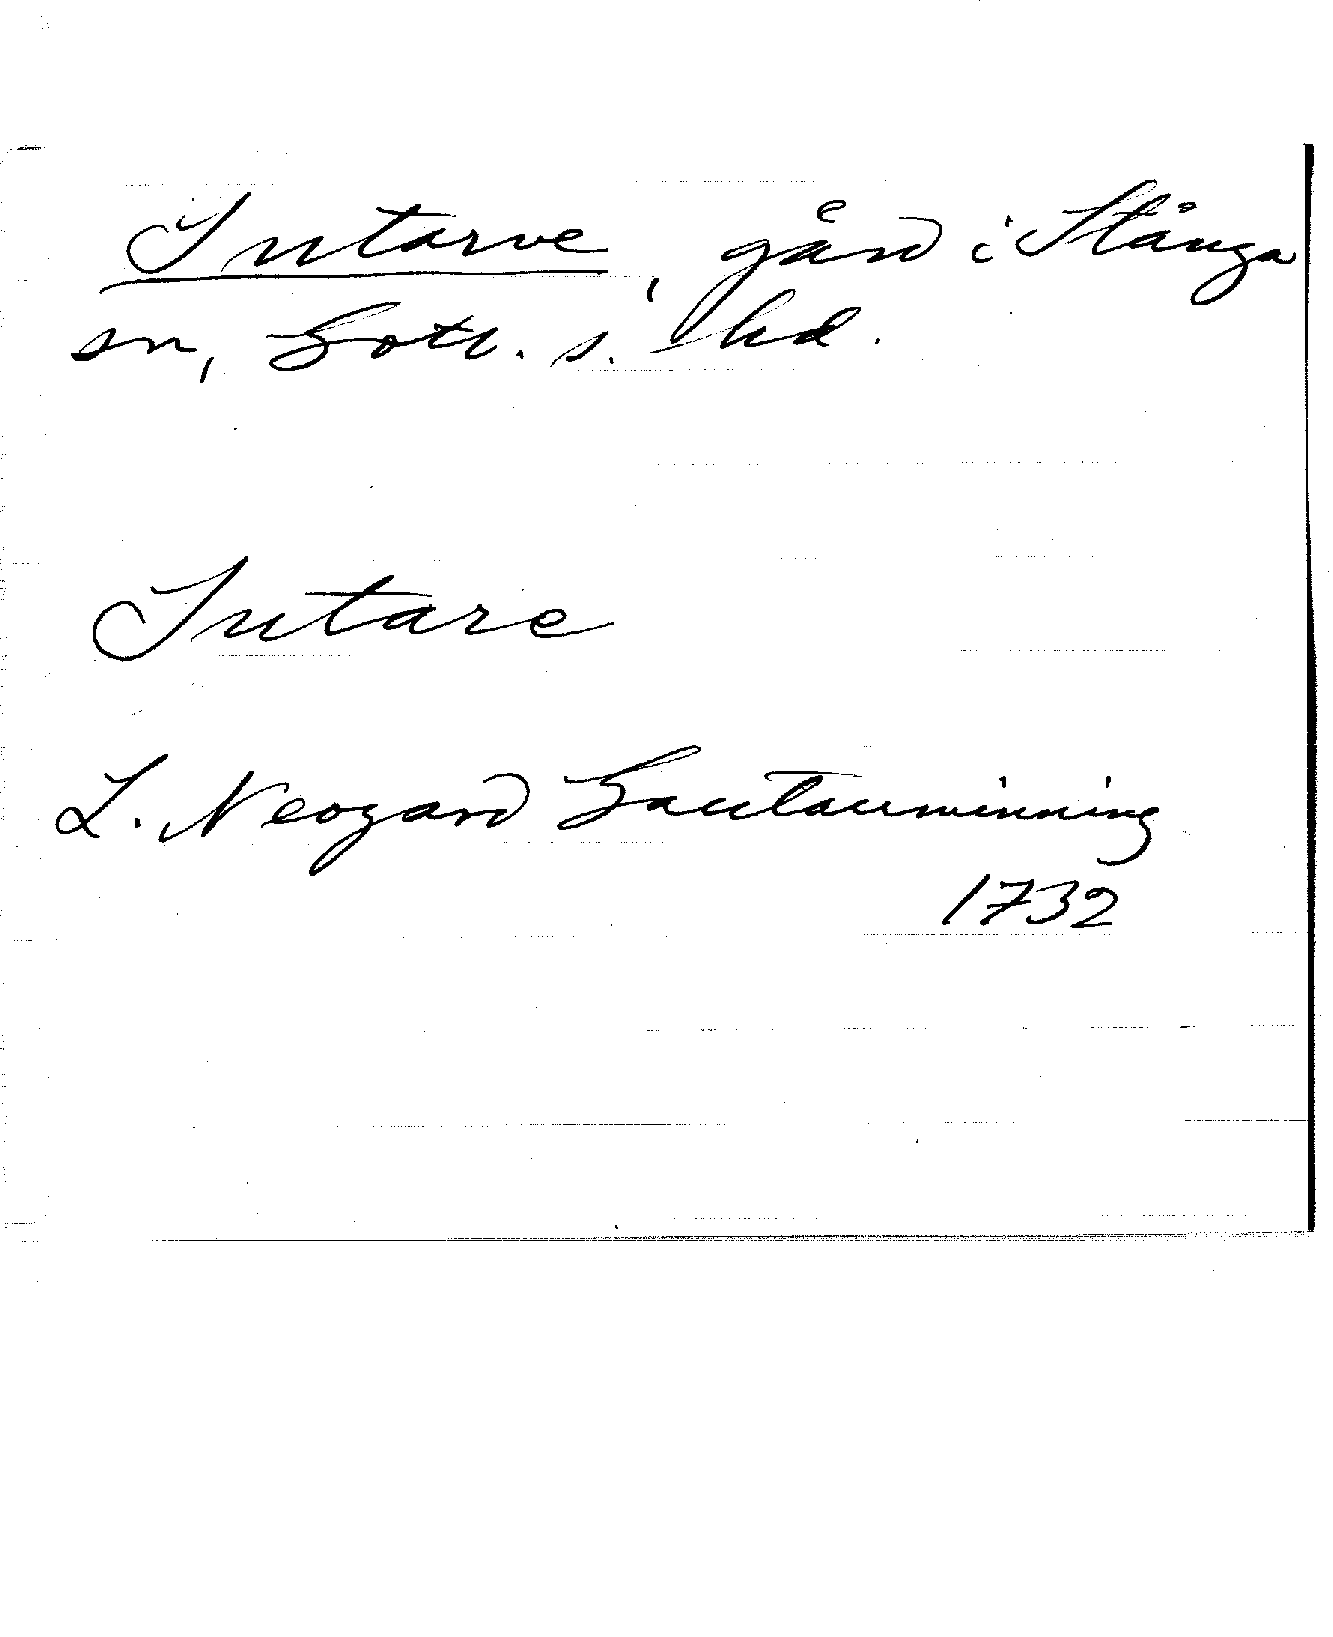 Intarve, gård i Stånga
sn, Gotl. s. hd.
Intare
L. Neogard Gautauminning
1732